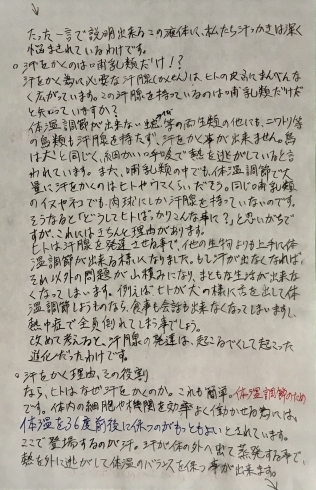 たった一言で説明出来るこの液体に、私たち汗っかきは深く
悩まされているわけです。
○ 汗をかくのは哺乳類だけ!?
汗をかく為に必要な汗腺(かんせん)は、ヒトの皮ふにまんべんな
く広がっています。この汗腺を持っているのは哺乳類だけだ
と知っていますか?
体温調節が出来ない 等の両生類の他にも、ニワトリ等
の鳥類も汗腺を持たず、汗をかく事が出来ません。鳥
は犬と同じく、細かい呼吸で熱を逃がしていると言
われています。また、哺乳類の中でも、体温調節で大
量に汗をかくのはヒトやウマくらいだそう。同じ哺乳類
のイヌやネコでも、肉球にしか汗腺を持っていないのです。
そうなると「どうしてヒトばっかりこんな事に?」と思いがちで
すが、これにはきちんと理由があります。
ヒトは汗腺を発達させる事で、他の生物よりも上手に体
温調節が出来る様になりました。もし汗が出なくなれば、
それ以外の問題が山積みになり、まともな生活が出来な
くなってしまいます。例えばヒトが犬の様に舌を出して体
温調節しようものなら、食事も会話も出来なくなってしまいますし、
熱中症で全員倒れてしまう事でしょう。
改めて考えると、汗腺の発達は、起こるべくして起こった
進化だったわけです。
○ 汗をかく理由、その役割
なら、ヒトはなぜ汗をかくのか。これも簡単。体温調節のため
です。体内の細胞や機関を効率よく働かせる為には、
体温を36度前後に保つのがもっともよいとされています。
ここで登場するのが汗。汗が体の外へ出て蒸発する事で、
熱を外に逃がして体温のバランスを保つ事が出来ます。